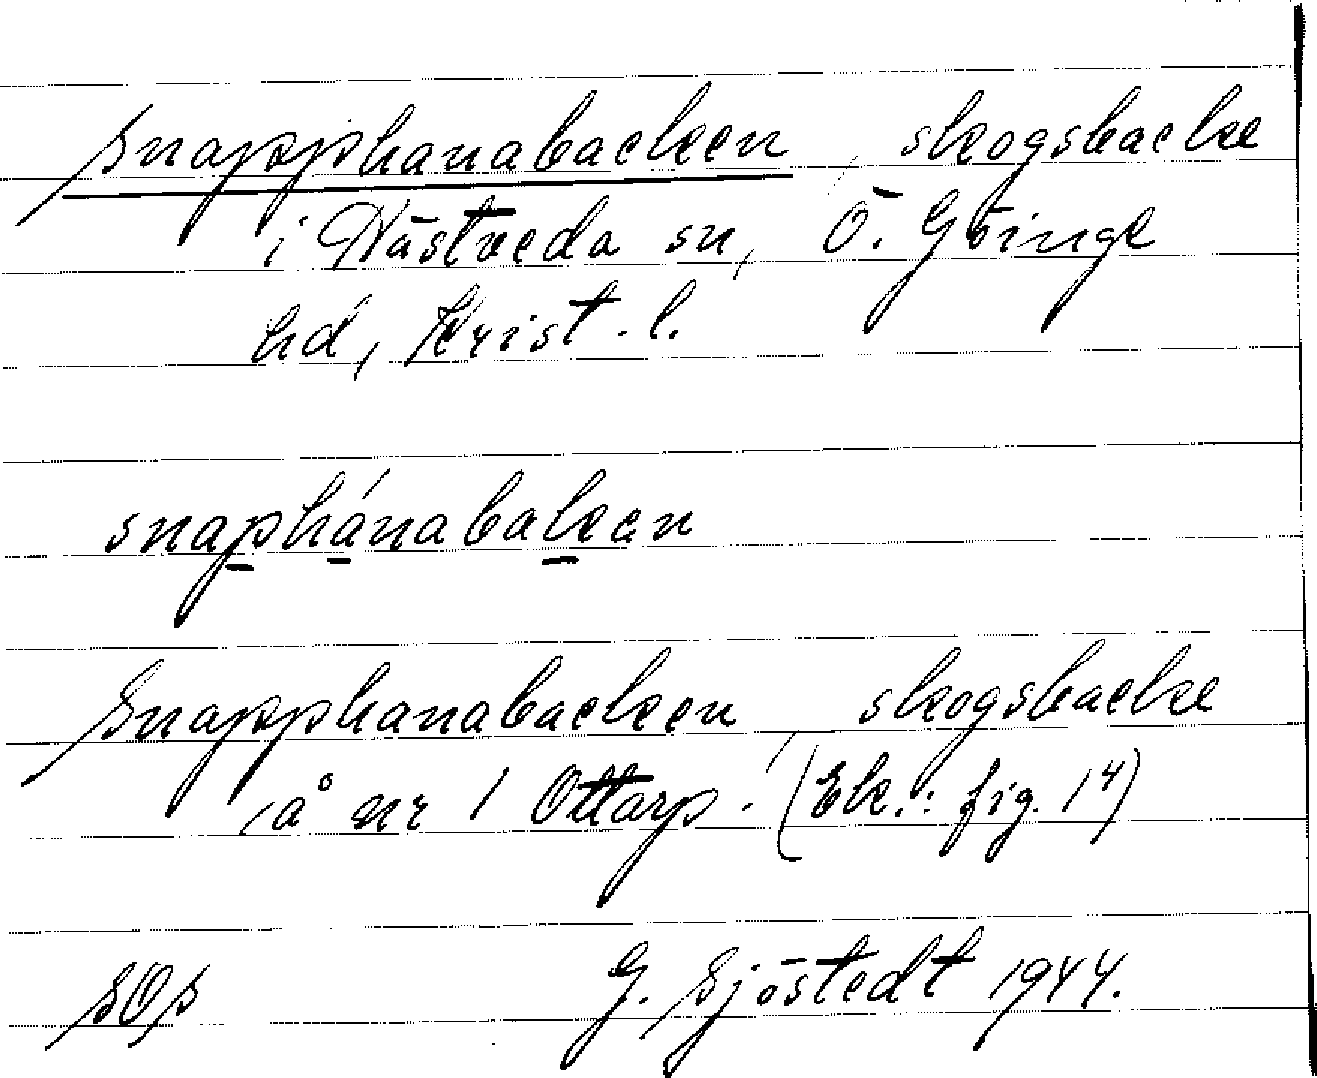 Snapphanabacken, skogsbacke
i Västveda sn, Ö. Göinge
hd, Krist. l.
snaphánabakan
Snapphanabacken, skogsbacke
å nr 1 Ottarp. (Ek.: fig. 14)
G. Sjöstedt 1944.